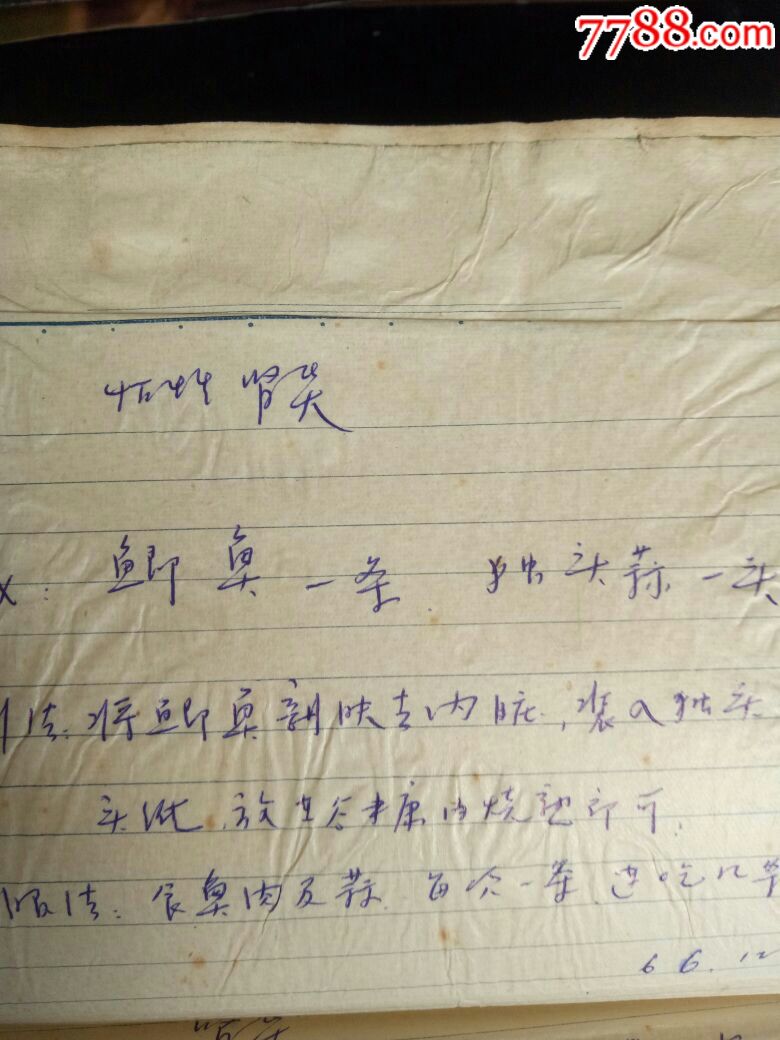 7788.com
怕性 肾炎
鲫鱼一条. 独头蒜一头
法:将鲫鱼剖肚去内脏,装入独头
放在谷米康内烧熟即可.
服法:食鱼肉及蒜.每次一条.连吃几条
66.12
肾炎